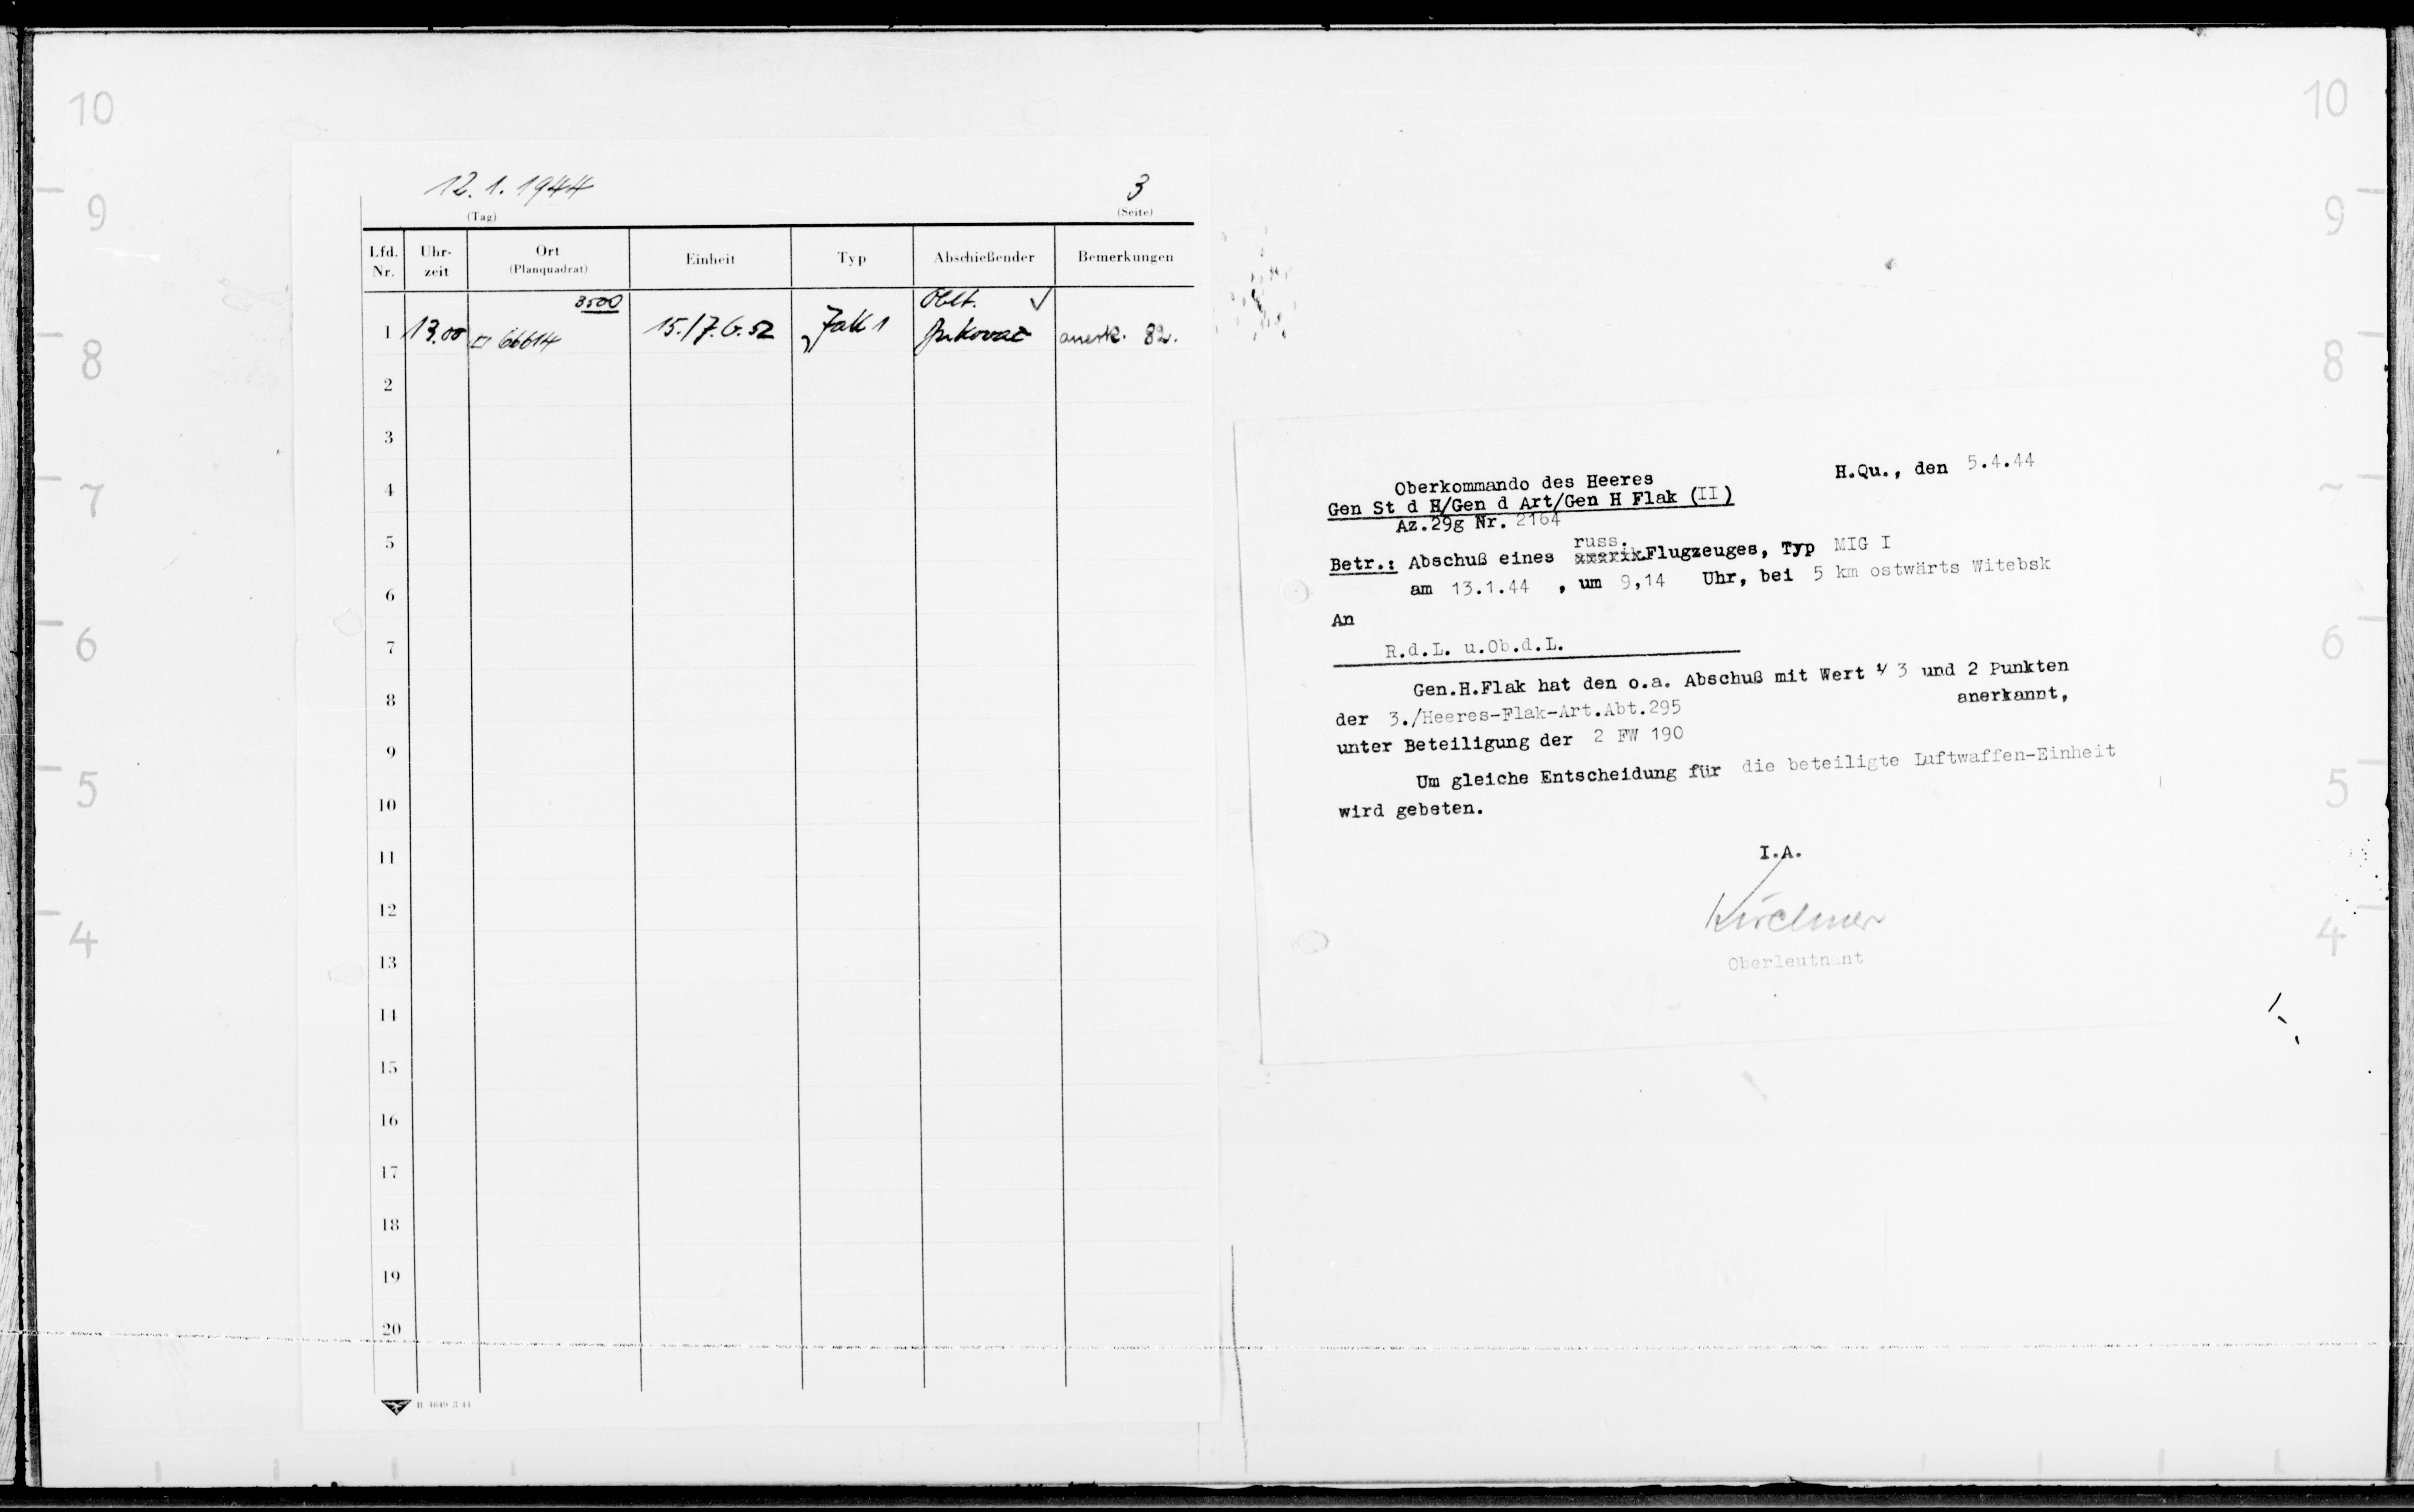 12.1.1944
3
(Tag)
(Seite)
Lfd. Nr.
Uhr-zeit
Ort (Planquadrat)
Einheit
Typ
Abschießender
Bemerkungen
3500
Oblt. ✓
1 13.00 □ 66614 15./J.G.52 Jak 1 anerk. 82.
2
3
4
5
6
7
8
9
10
11
12
13
14
15
16
17
18
19
20
Oberkommando des Heeres
H.Qu., den 5.4.44
Gen St d H/Gen d Art/Gen H Flak (II)
Az.29g Nr. 2164
russ.
Betr.: Abschuß eines amerik.Flugzeuges, Typ MIG I
am 13.1.44 , um 9,14 Uhr, bei 5 km ostwärts Witebsk
An
R.d.L. u.Ob.d.L.
Gen.H.Flak hat den o.a. Abschuß mit Wert 1/3 und 2 Punkten
der 3./Heeres-Flak-Art.Abt.295 anerkannt,
unter Beteiligung der 2 FW 190
Um gleiche Entscheidung für die beteiligte Luftwaffen-Einheit
wird gebeten.
I.A.
Kirchner
Oberleutnant
10
9
8
7
6
5
4
10
9
8
6
5
4